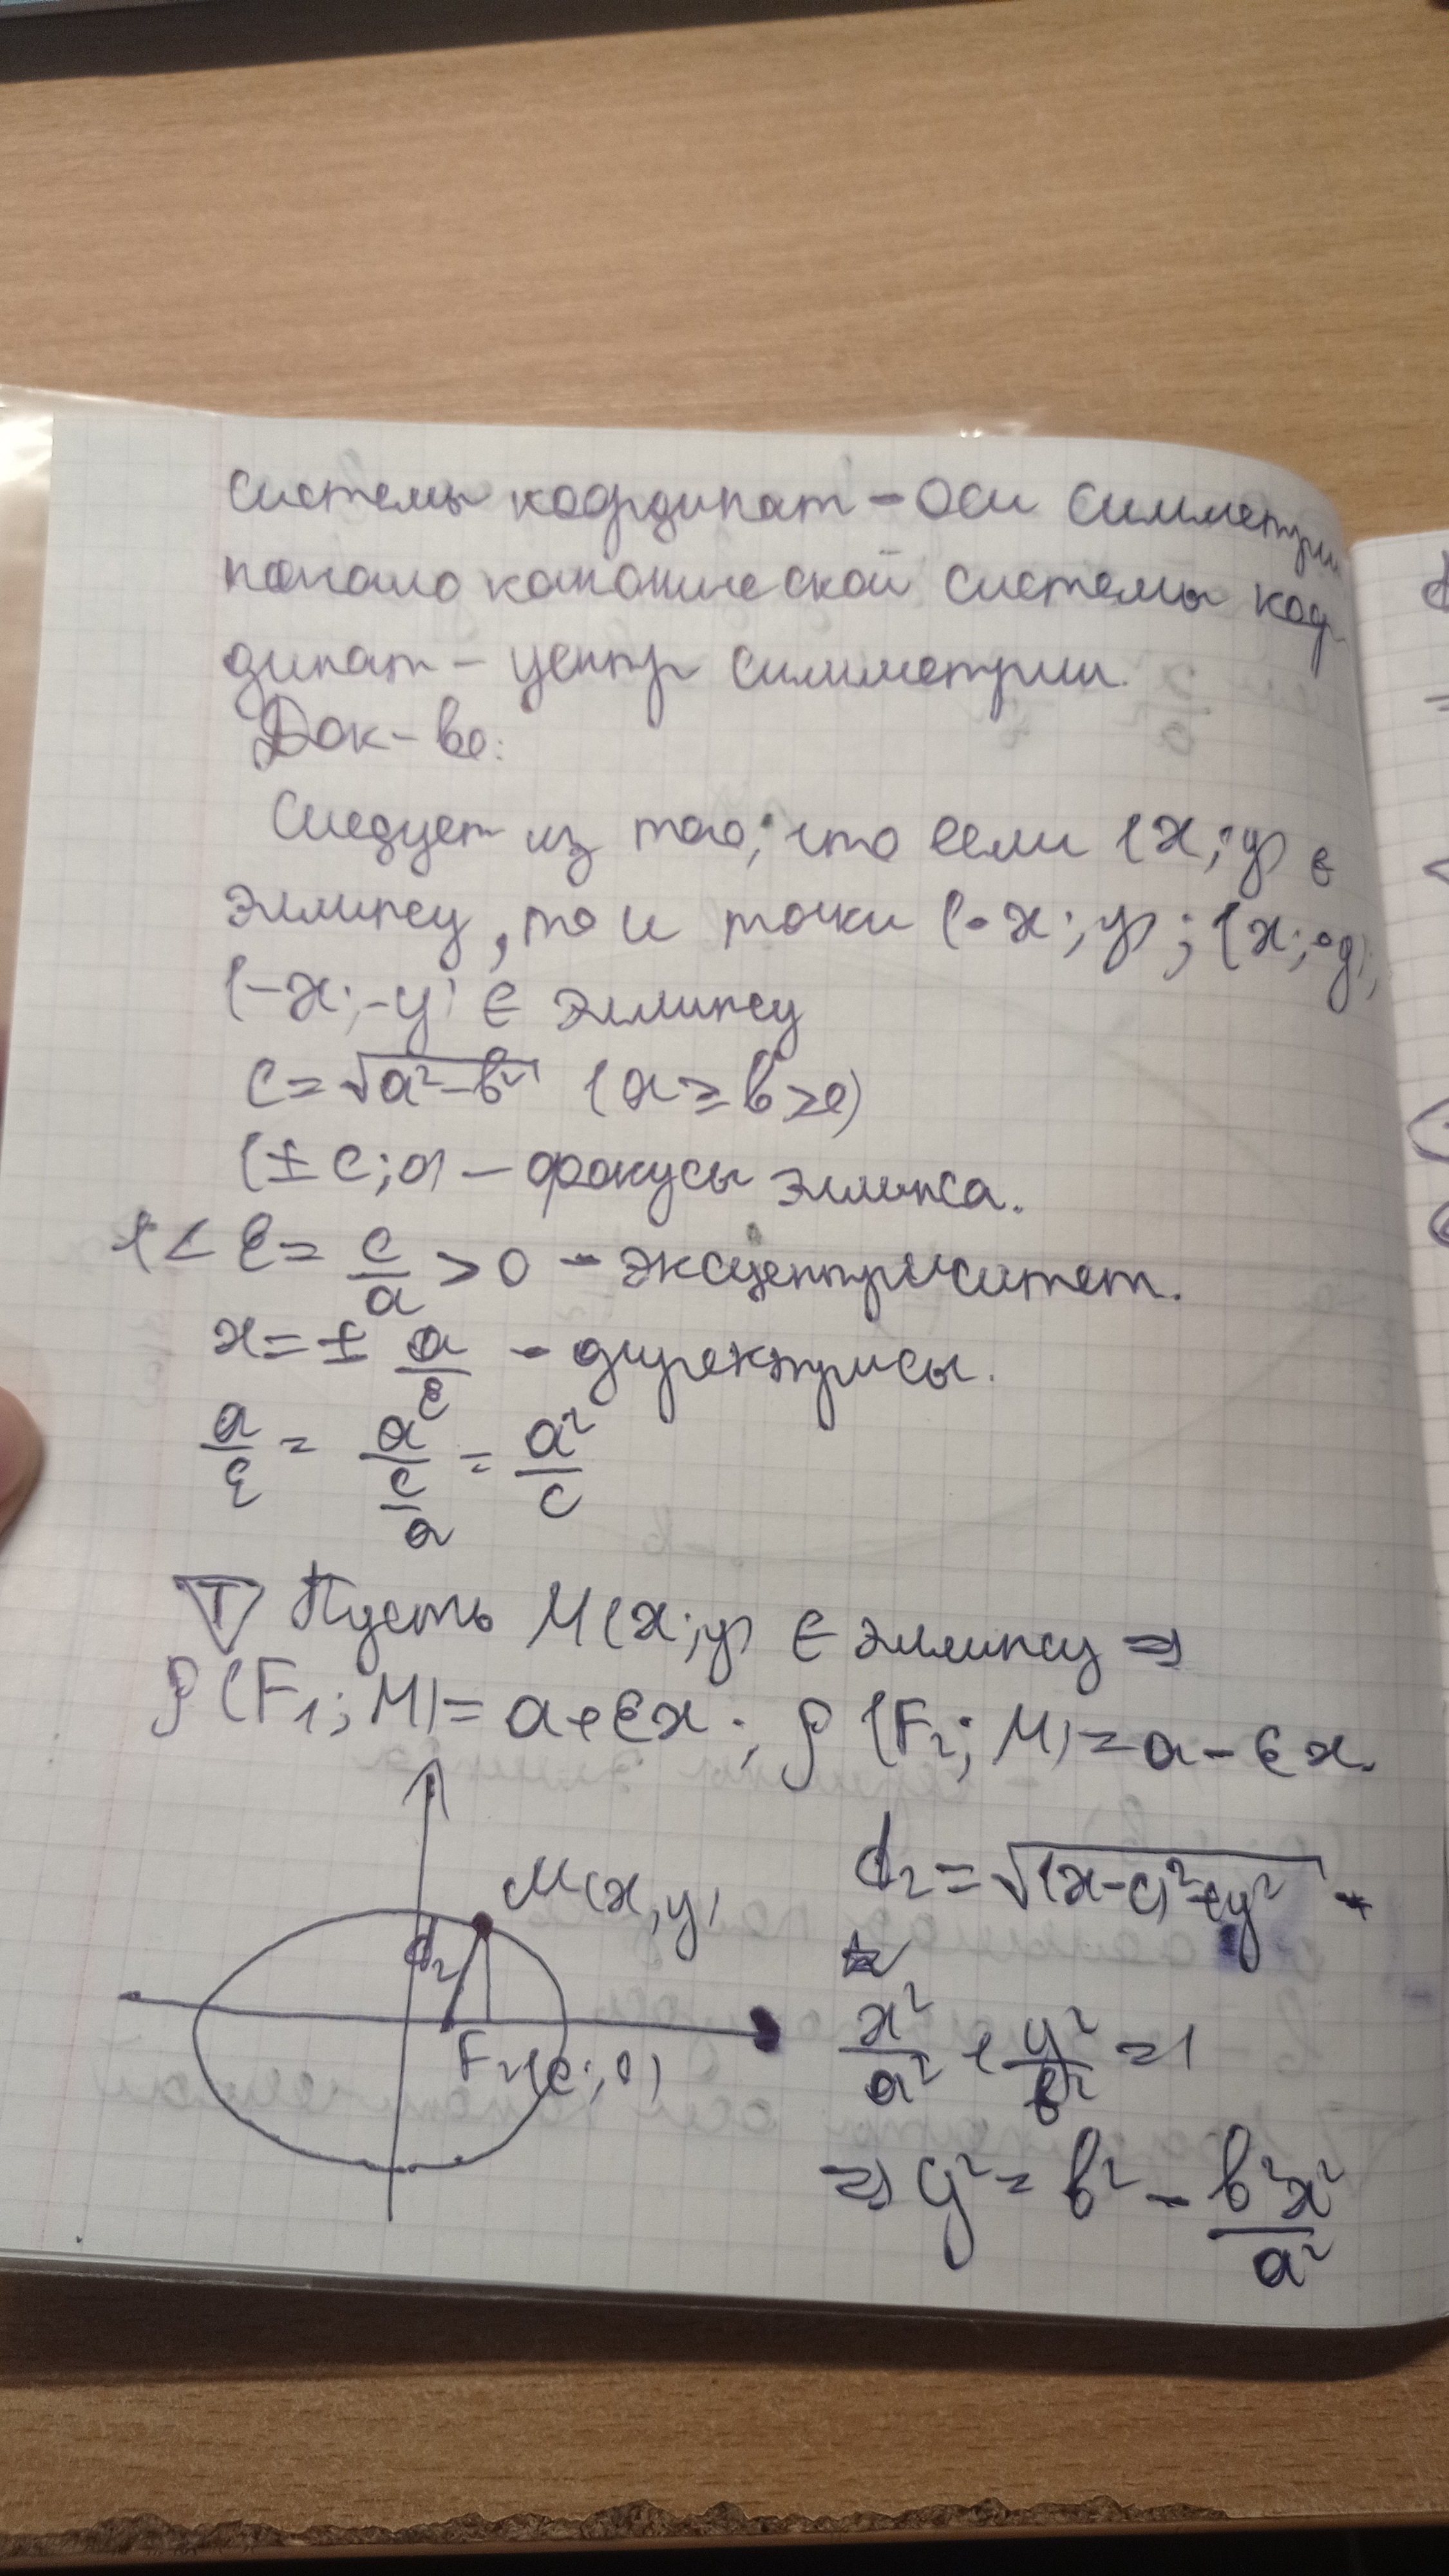 системы координат - оси симметрии
начало канонической системы коор
динат - центр симметрии.
Док-во:
Следует из того, что если (x; y) ∈
эллипсу, то и точки (-x; y); (x; -y);
(-x; -y) ∈ эллипсу
c = √(a² - b²) (a ≥ b > 0)
(± c; 0) - фокусы эллипса.
1 < ε = c/a > 0 - эксцентриситет.
x = ± a/ε - директрисы.
a/ε = a/(c/a) = a²/c
T Пусть M(x; y) ∈ эллипсу ⇒
ρ(F₁; M) = a + εx ; ρ(F₂; M) = a - εx.
M(x, y)
d₂
F₂(c; 0)
d₂ = √((x - c)² + y²)
x²/a² + y²/b² = 1
⇒ y² = b² - b²x²/a²